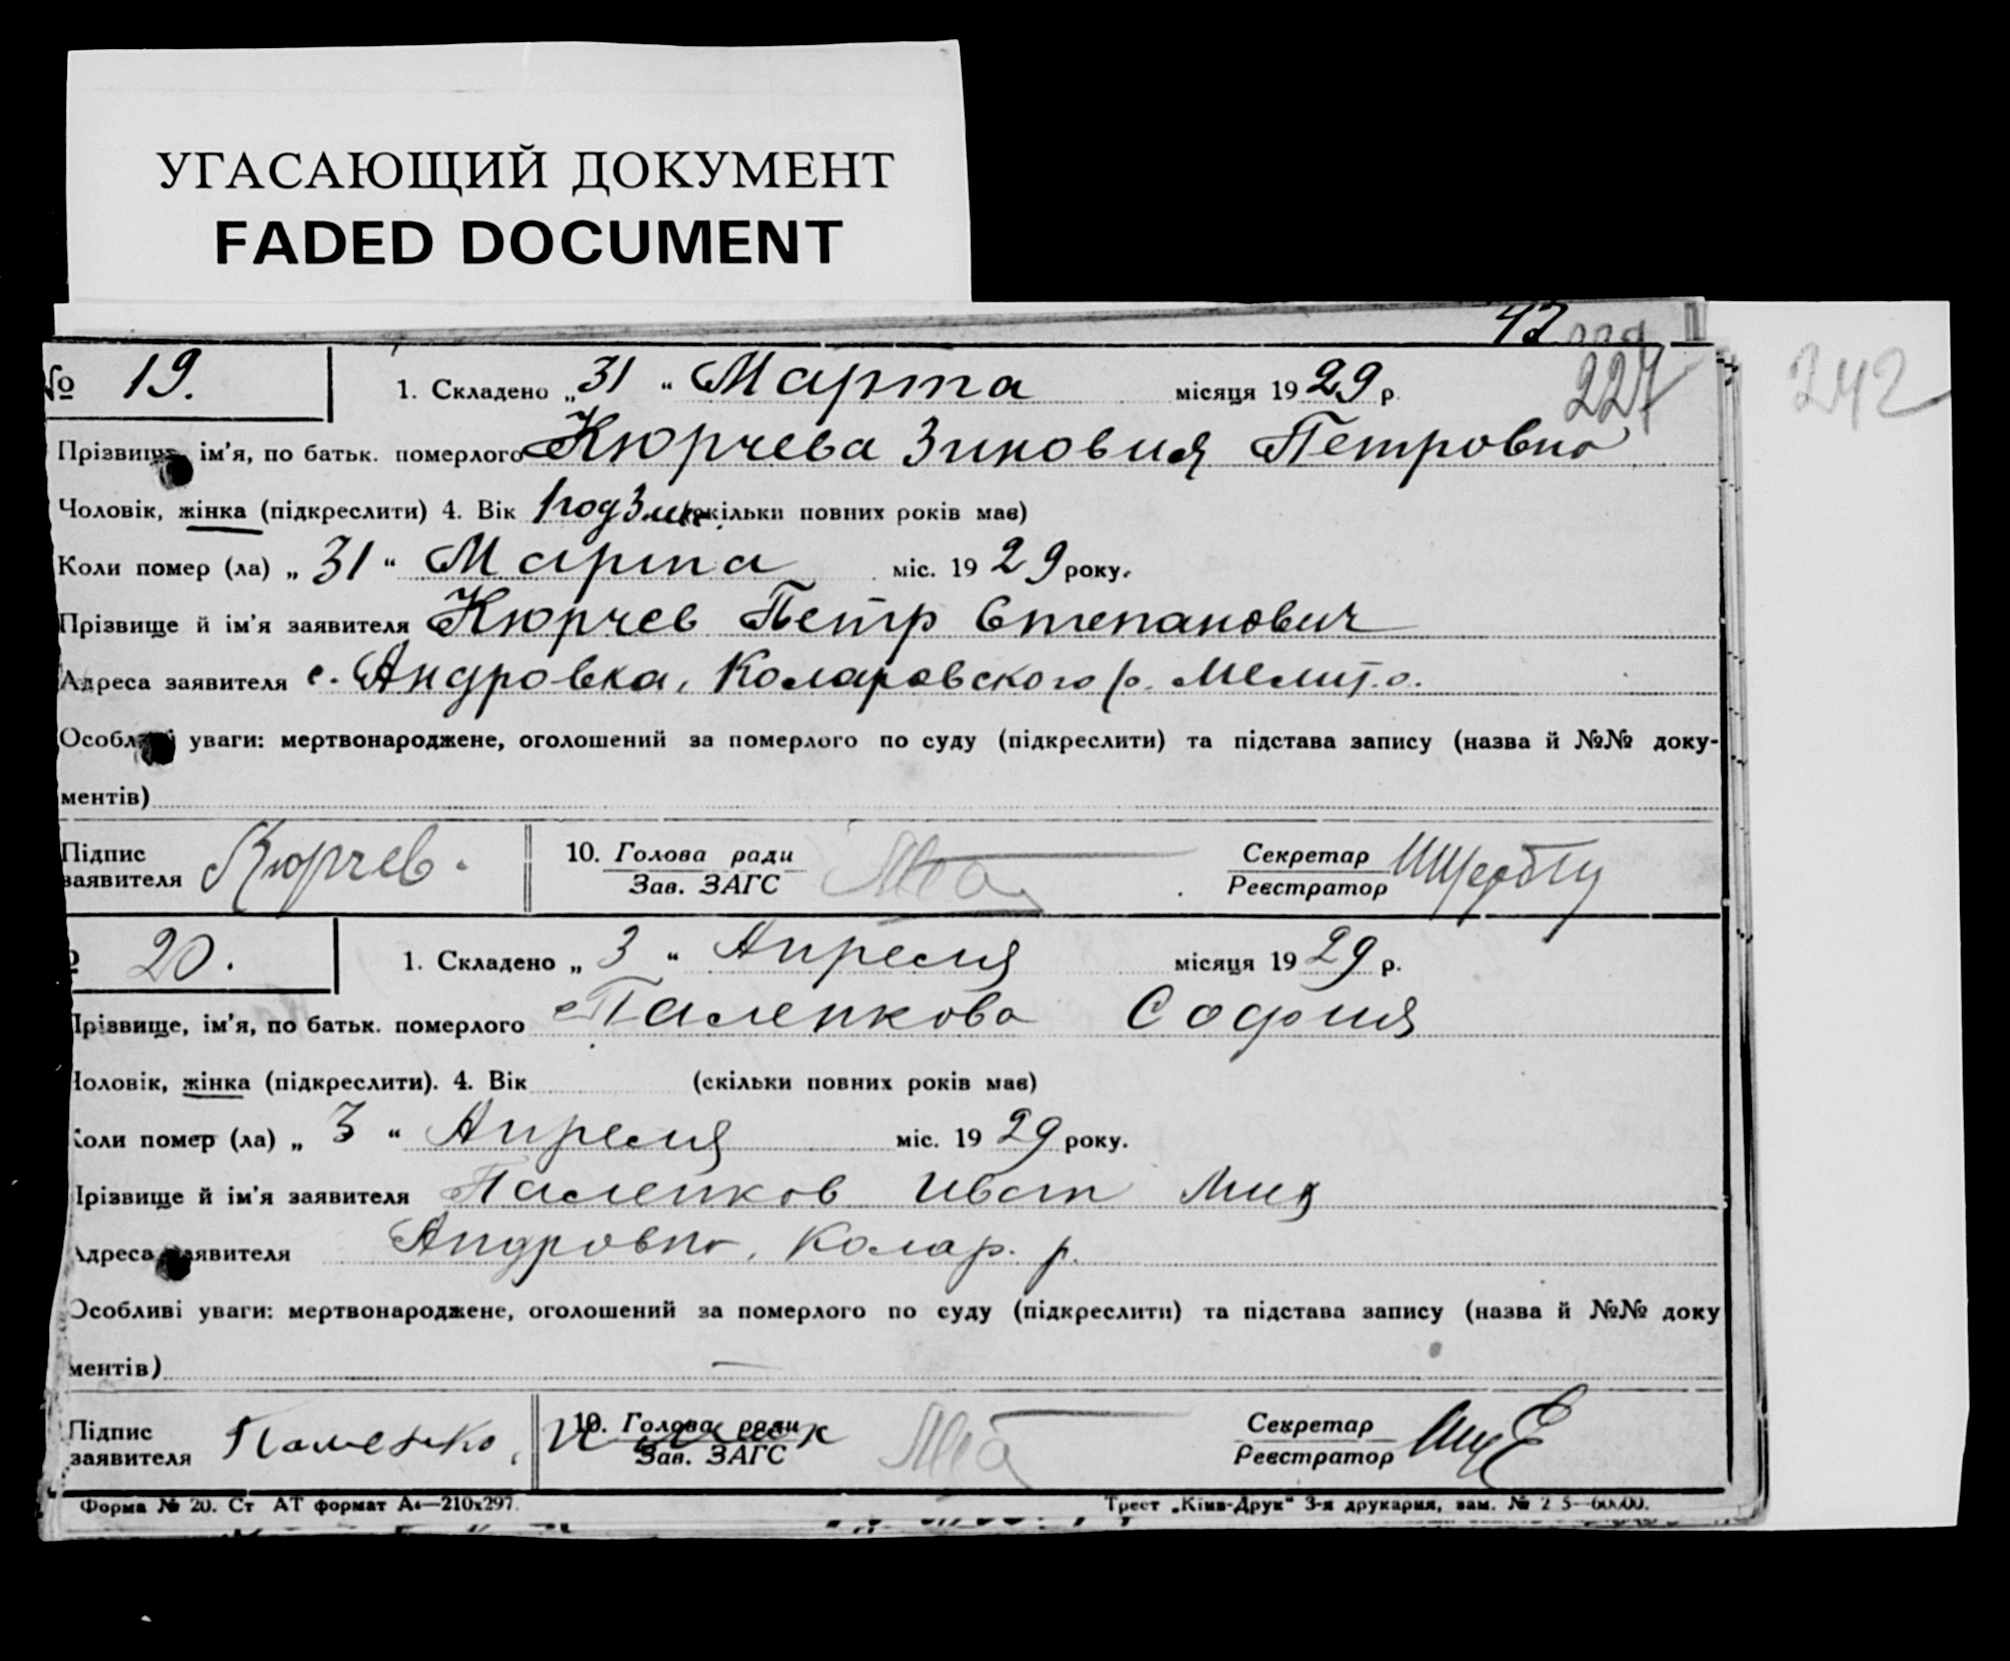 УГАСАЮЩИЙ ДОКУМЕНТ
FADED DOCUMENT
42
№ 19. 1. Складено „31“ Марта місяця 1929 р. 227
242
Прізвище, ім’я, по батьк. померлого Кюрчева Зиновия Петровна
Чоловік, жінка (підкреслити) 4. Вік 1 год 3 (скільки повних років має)
Коли помер (ла) „31“ Марта міс. 1929 року.
Прізвище й ім’я заявителя Кюрчев Петр Степанович
Адреса заявителя с. Андровка, Коларовского р. Мелит. о.
Особливі уваги: мертвонароджене, оголошений за померлого по суду (підкреслити) та підстава запису (назва й №№ доку-
ментів)
Підпис заявителя Кюрчев. 10. Голова ради Зав. ЗАГС Секретар Реєстратор
20. 1. Складено „3“ Апреля місяця 1929 р.
Прізвище, ім’я, по батьк. померлого Паленкова София
Чоловік, жінка (підкреслити). 4. Вік (скільки повних років має)
Коли помер (ла) „3“ Апреля міс. 1929 року.
Прізвище й ім’я заявителя Паленков Иван Мих
Адреса заявителя Андровка, Колар. р.
Особливі уваги: мертвонароджене, оголошений за померлого по суду (підкреслити) та підстава запису (назва й №№ доку
ментів)
Підпис заявителя 10. Голова ради Зав. ЗАГС Секретар Реєстратор
Форма № 20. Ст АТ формат А4—210х297. Трест „Київ-Друк“ 3-я друкарня, зам. №